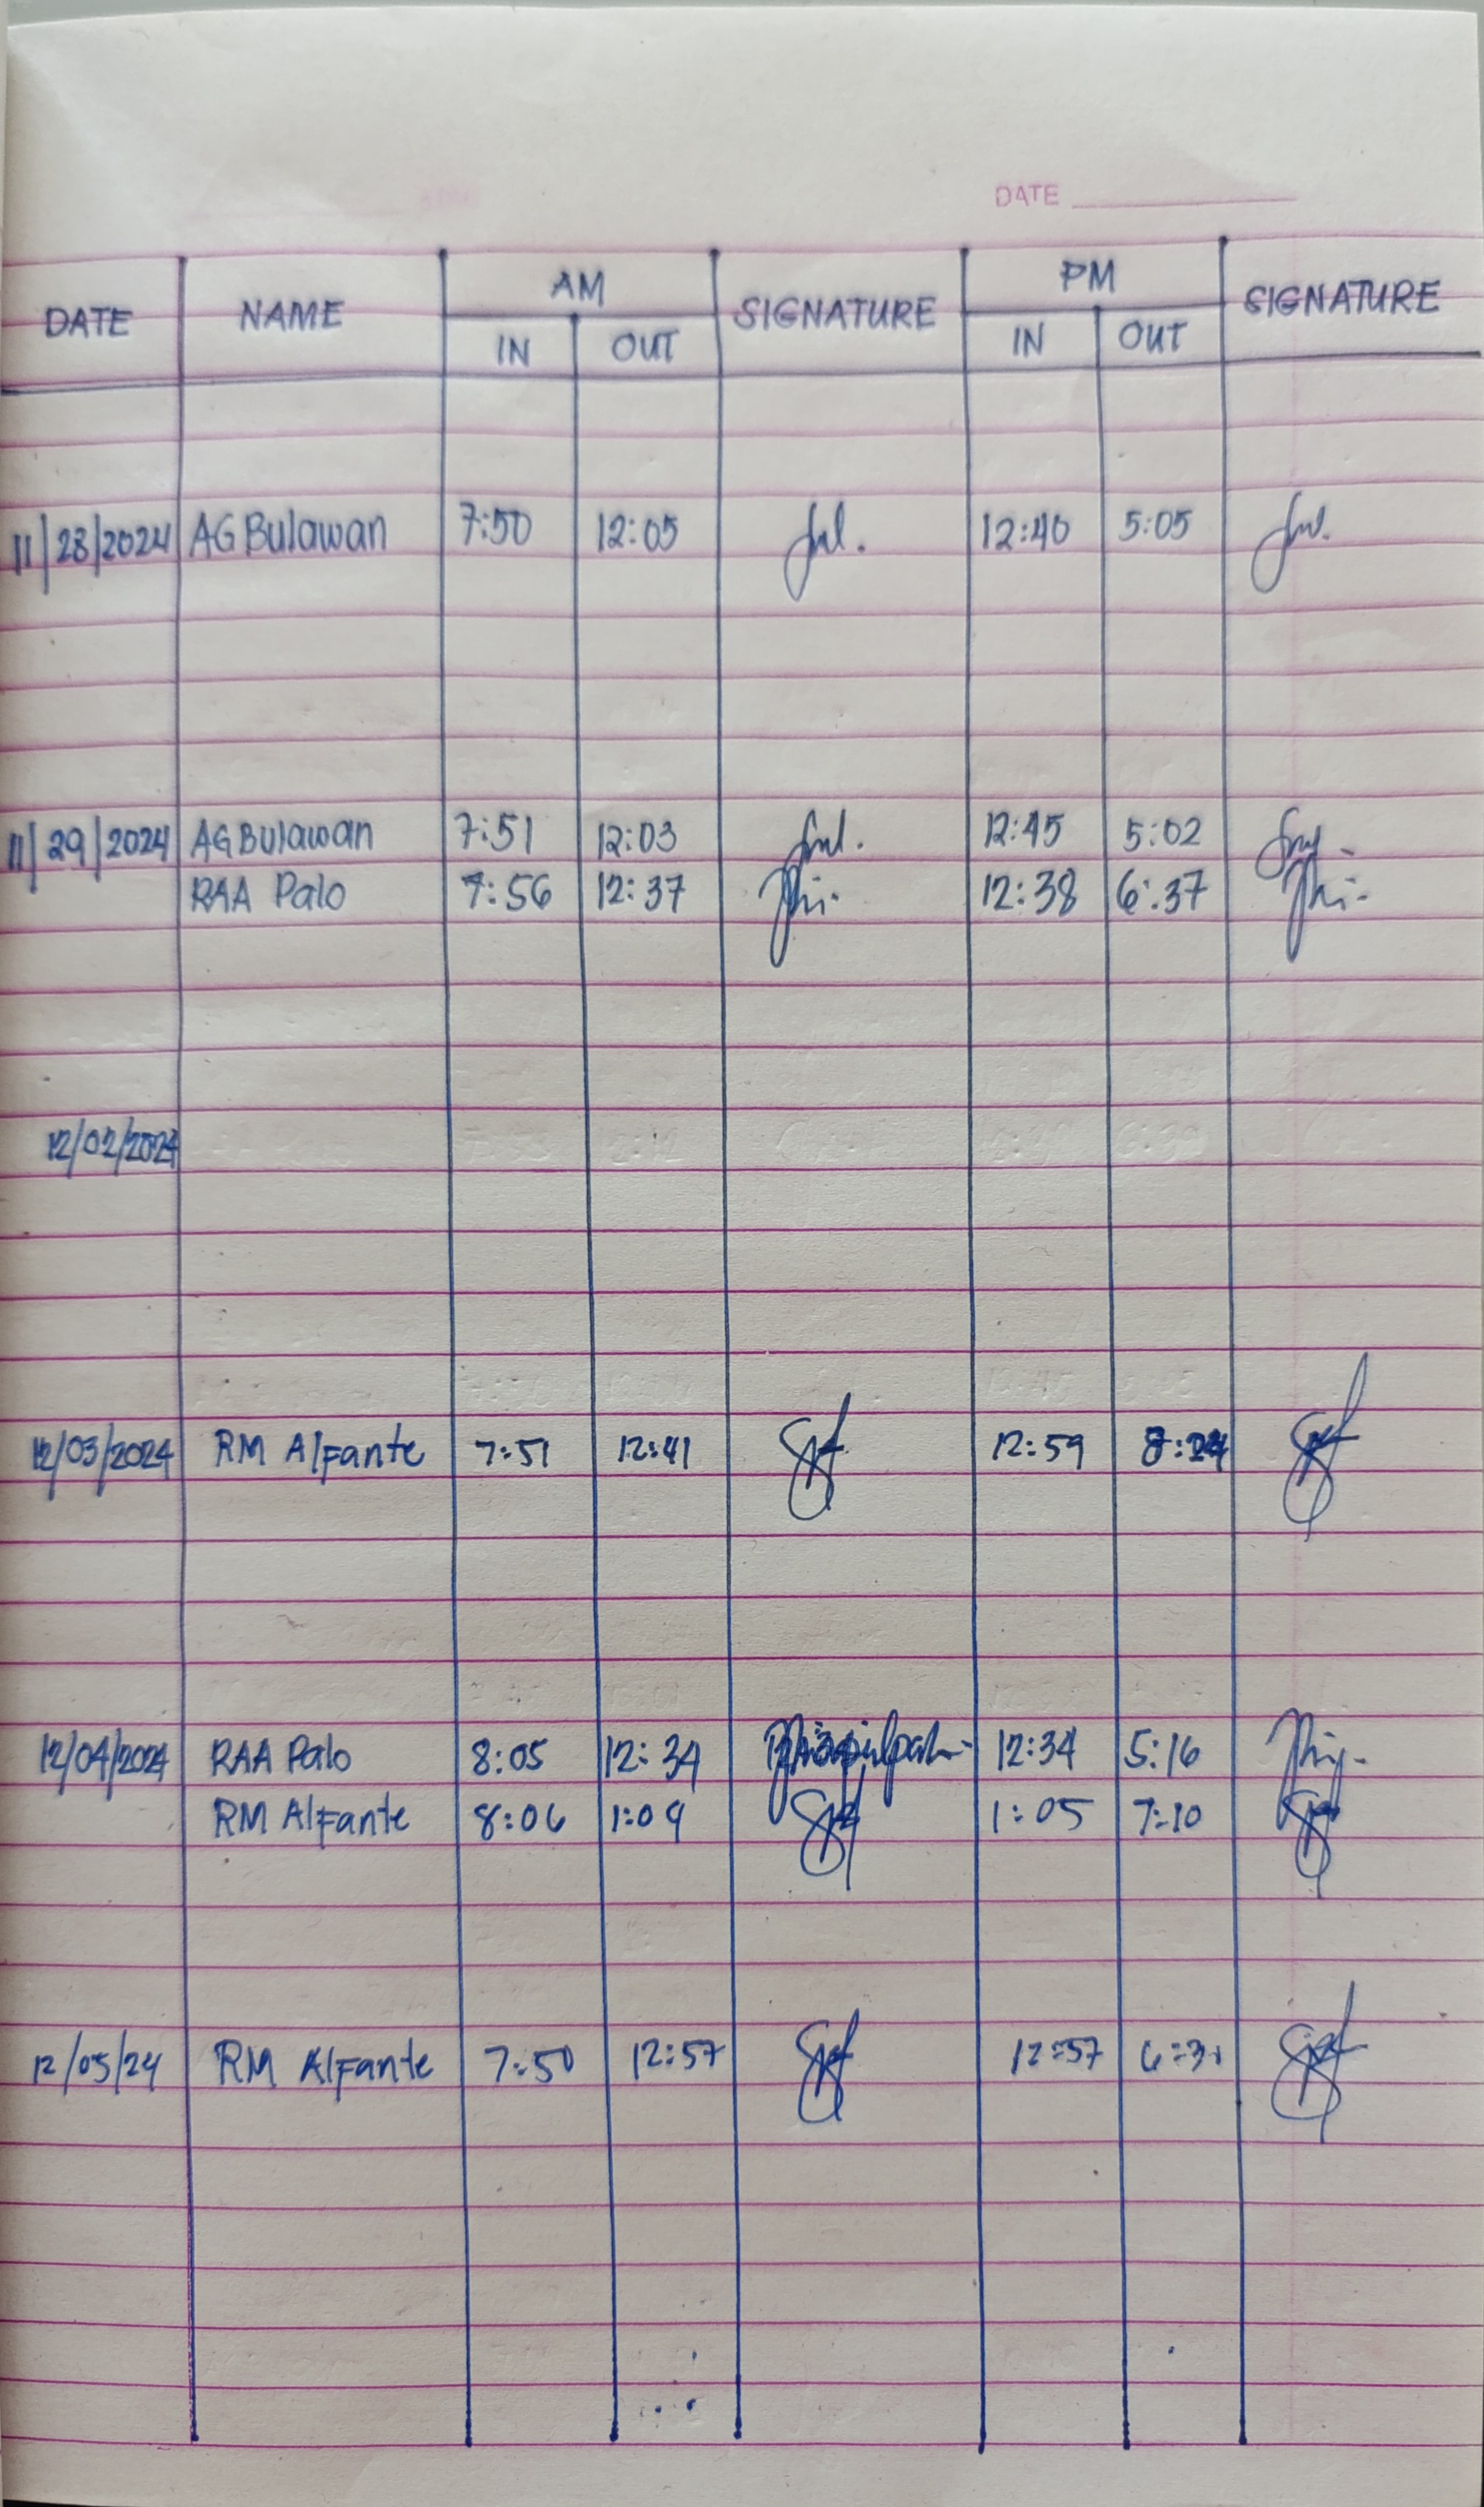 DATE
DATE NAME AM SIGNATURE PM SIGNATURE
IN OUT IN OUT
11/28/2024 AG Bulawan 7:50 12:05 12:40 5:05
11/29/2024 AG Bulawan 7:51 12:03 12:45 5:02
RAA Palo 7:56 12:37 12:38 6:37
12/02/2024
12/03/2024 RM Alfante 7:51 12:41 12:59
12/04/2024 RAA Palo 8:05 12:34 12:34 5:16
RM Alfante 8:06 1:09 1:05 7:10
12/05/24 RM Alfante 7:50 12:57 12:57